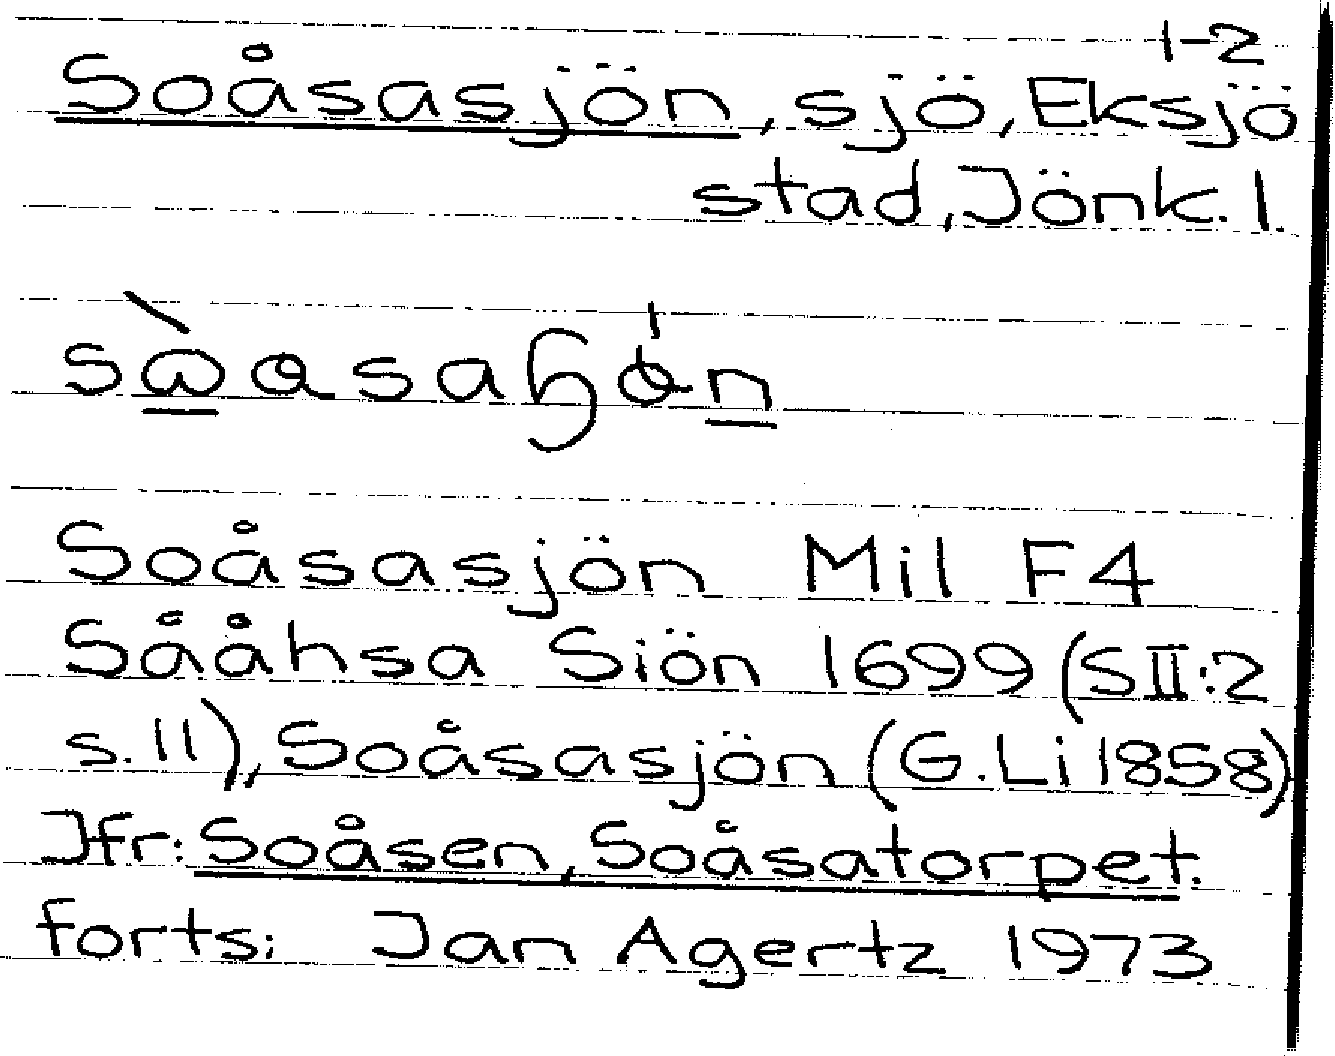 1-2
Soåsasjön, sjö, Eksjö
stad, Jönk. l.
Soåsasjön Mil F4
Sååhsa Siön 1699 (S II:2
s. 11), Soåsasjön (G. Li 1858)
Jfr: Soåsen, Soåsatorpet.
forts; Jan Agertz 1973